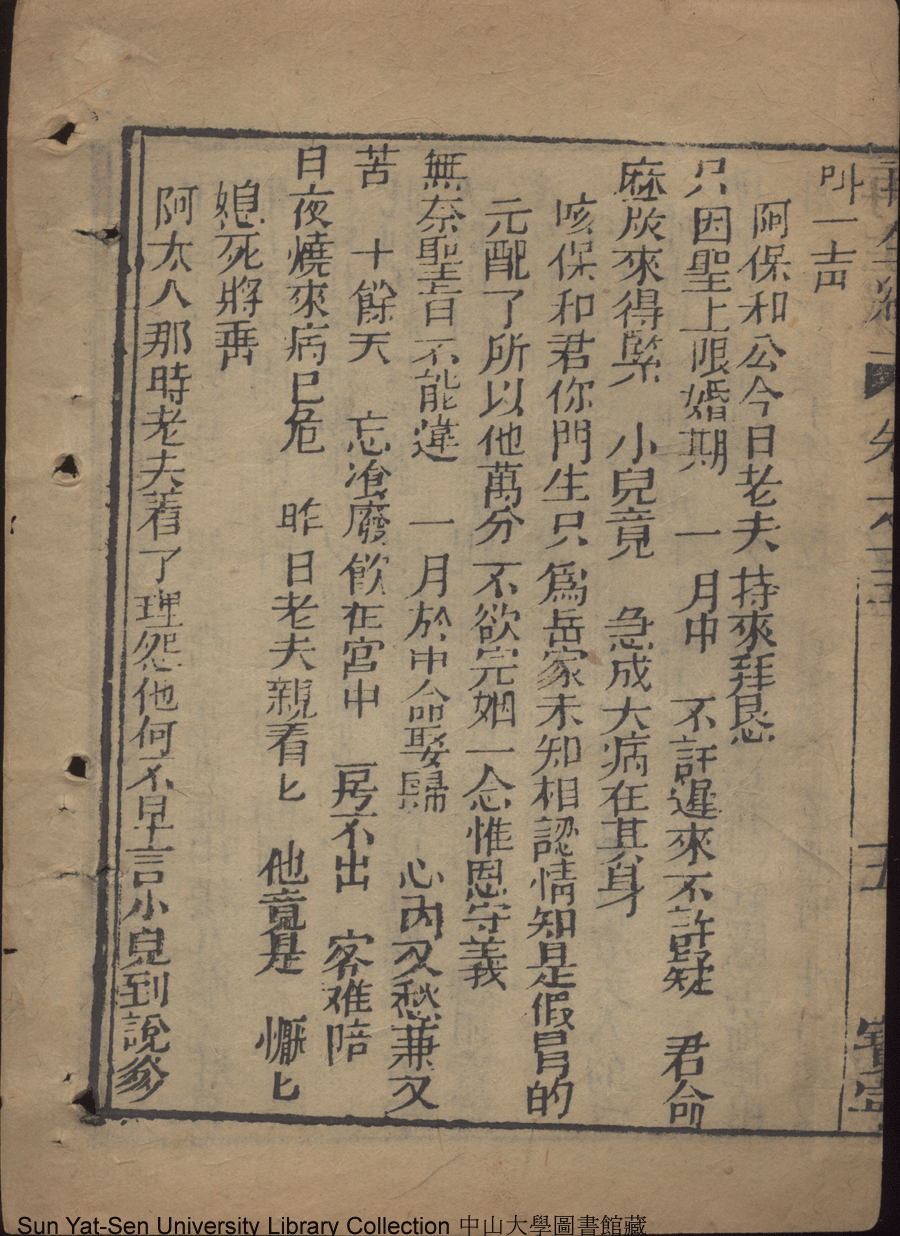 叫一声
阿保和公今日老夫持來拜恳
只因聖上限婚期 一月中 不許遲來不許疑 君命
麻灰來得緊 小兒竟 急成大病在其身
咳保和君你門生只為岳家未知相認情知是假冒的
元配了所以他萬分不欲完姻一念惟恩守義
無奈聖旨不能違 一月於中命娶歸 心內又愁兼又
苦 十餘天 忘飡廢飲在宮中 房不出 客难陪
日夜燒來病已危 昨日老夫親看匕 他竟是 懨匕
媳死將喪
阿太人那時老夫着了理怨他何不早言小兒到說爹
五
Sun Yat-Sen University Library Collection 中山大學圖書館藏